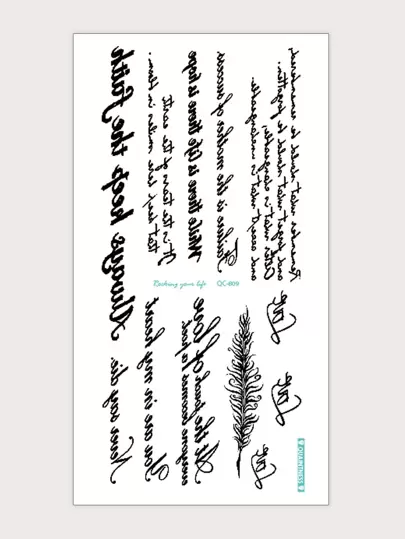 Always keep the Faith
It is the tears of the earth
that keep her smiles in bloom.
While there is life there is hope
Failure is the mother of success
Remember what should be remembered,
and forget what should be forgotten.
Alter what is changeable,
and accept what is unchangeable.
Rocking your life QC-609
Never say die
You are in my heart
At the touch of love
everyone becomes a poet
Love
Love
Love